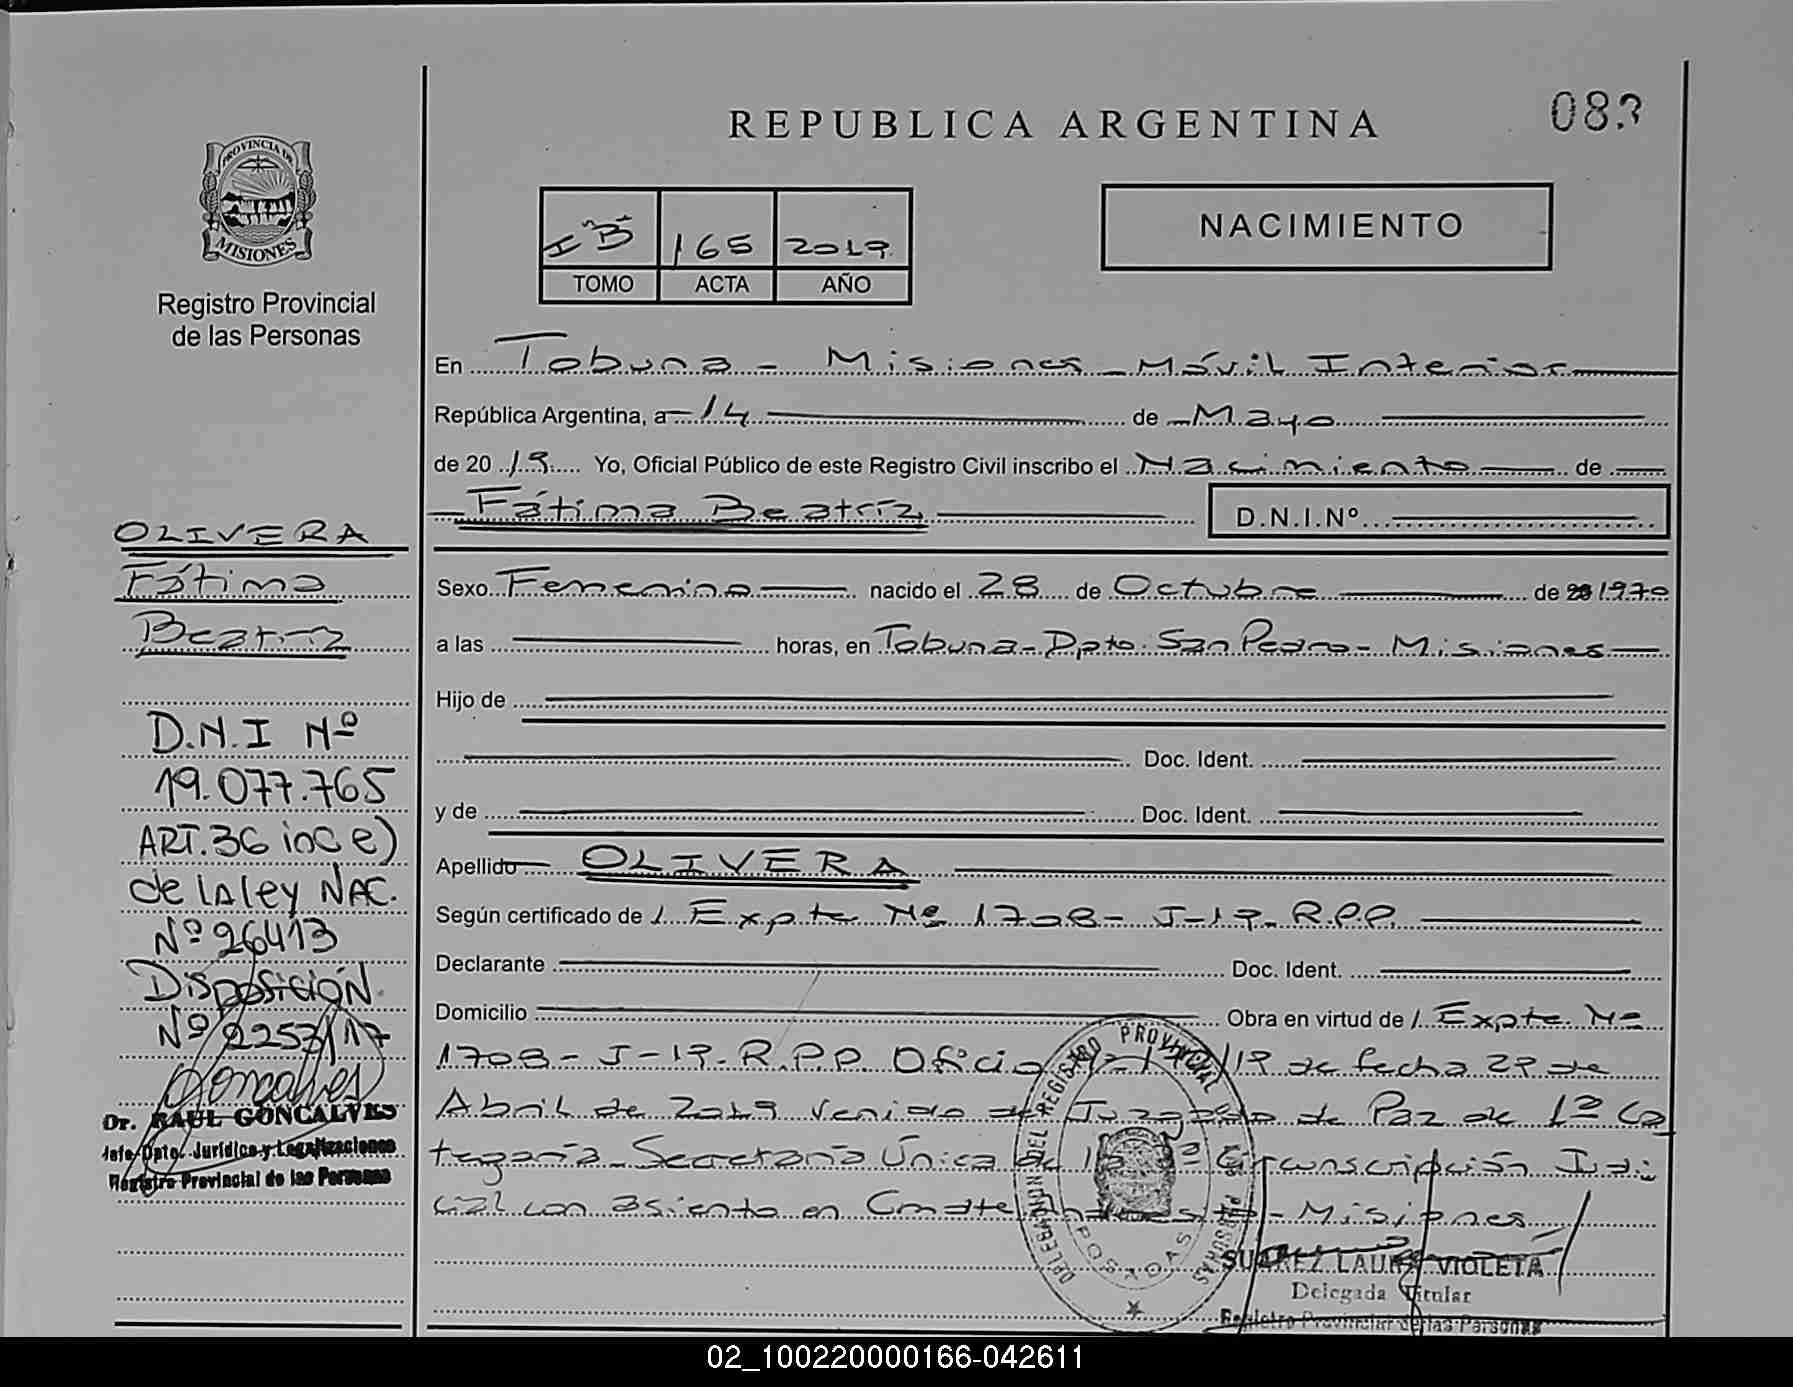 083
REPUBLICA ARGENTINA
PROVINCIA DE
MISIONES
Registro Provincial
de las Personas
I "B" 165 2019
TOMO ACTA AÑO
NACIMIENTO
En Tobuna - Misiones - Móvil Interior
República Argentina, a 14 de Mayo
de 2019 Yo, Oficial Público de este Registro Civil inscribo el Nacimiento de
Fátima Beatríz D.N.I.Nº
Sexo Femenino nacido el 28 de Octubre de 1970
a las horas, en Tobuna - Dpto. San Pedro - Misiones
Hijo de
Doc. Ident.
y de Doc. Ident.
Apellido OLIVERA
Según certificado de Expte Nº 1708 - J-19- R.P.P.
Declarante Doc. Ident.
Domicilio Obra en virtud de Expte Nº
1708 - J-19- R.P.P. Oficio /19 de fecha 29 de
Abril de 2019 venido de Juzgado de Paz de 1ª Ca
tegoría - Secretaría Única de la Circunscripción Judi
cial con asiento en Cmdte - Misiones
DELEGACION DEL REGISTRO PROVINCIAL DE LAS PERSONAS
POSADAS
SUAREZ LAURA VIOLETA
Delegada Titular
Registro Provincial de las Personas
OLIVERA
Fátima
Beatríz
D.N.I Nº
19.077.765
ART. 36 inc e)
de la ley NAC.
Nº 26413
Disposición
Nº 2253/17
Goncalves
Dr. RAUL GONCALVES
Jefe Dpto. Jurídico y Legalizaciones
Registro Provincial de las Personas
02_100220000166-042611